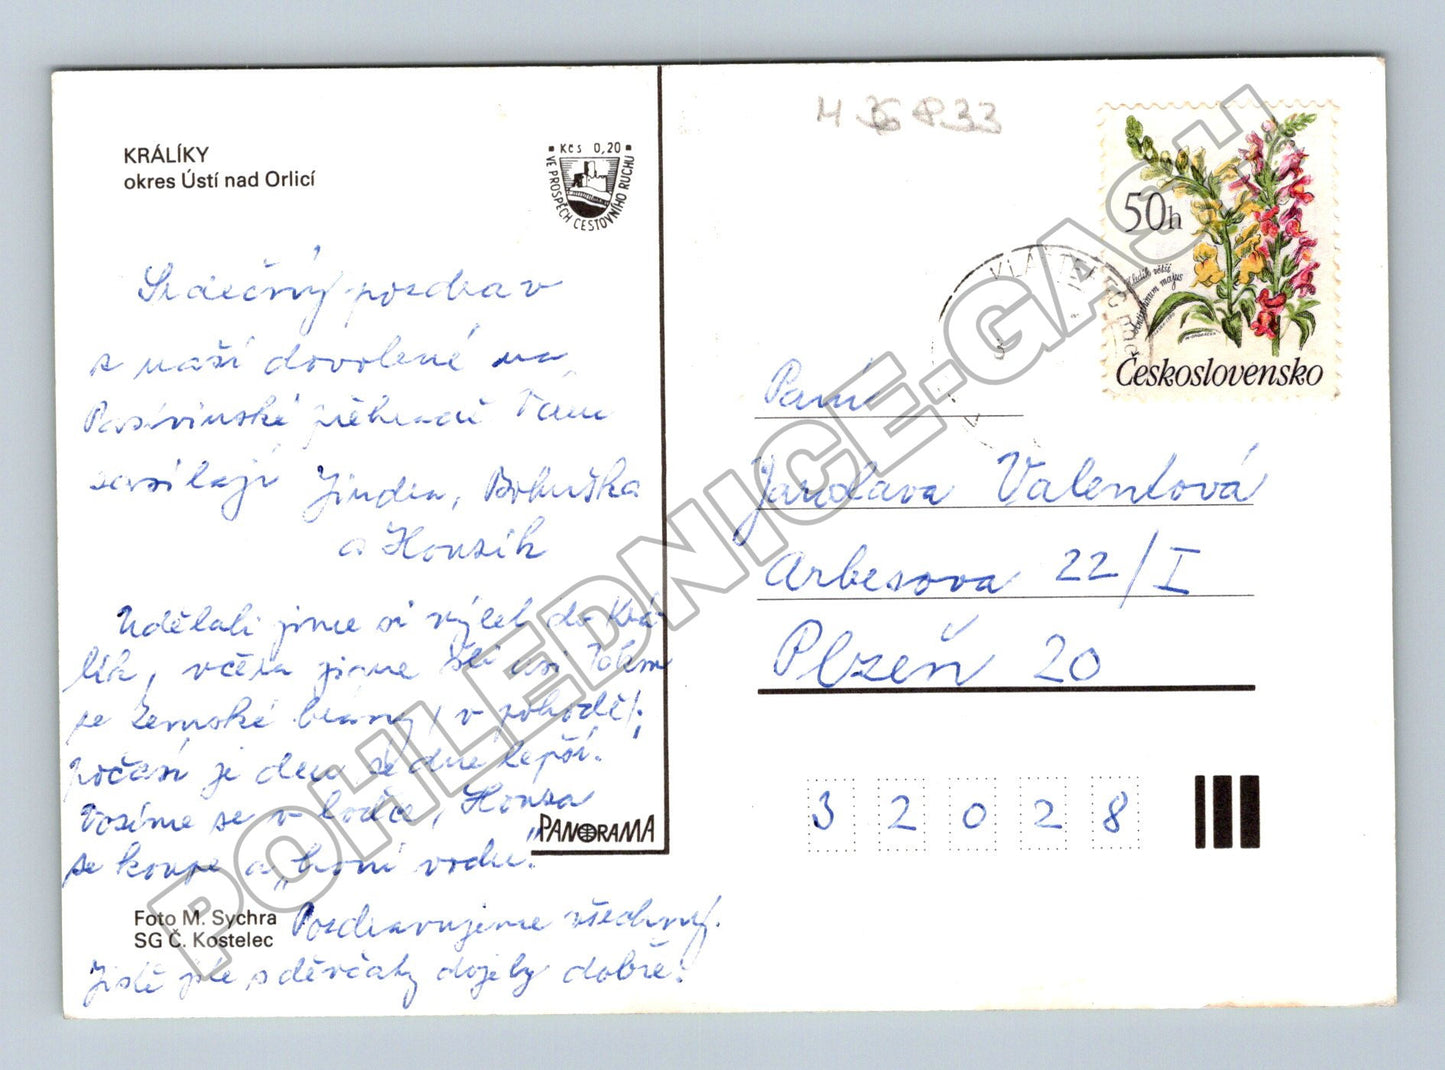 KRÁLÍKY
okres Ústí nad Orlicí
Kčs 0,20
VE PROSPĚCH CESTOVNÍHO RUCHU
Srdečný pozdrav
z naší dovolené na
Pastvinské přehradě Vám
zasílají Jindra, Bohuška
a Honzík
Udělali jsme si výlet do Krá-
lík, včera jsme šli
se Zemské brány, v pohodě!
počasí je den ze dne lepší.
Vozíme se v loďce, Honza
se koupe a „broní vodu".
Pozdravujeme všechny.
Jistě jste s děvčaty dojely dobře!
PANORAMA
Foto M. Sychra
SG Č. Kostelec
50h
Hledík větší
Antirrhinum majus
Československo
KLÁŠTEREC
Paní
Jaroslava Valentová
Arbesova 22/I
Plzeň 20
32028
POHLEDNICE-GASH